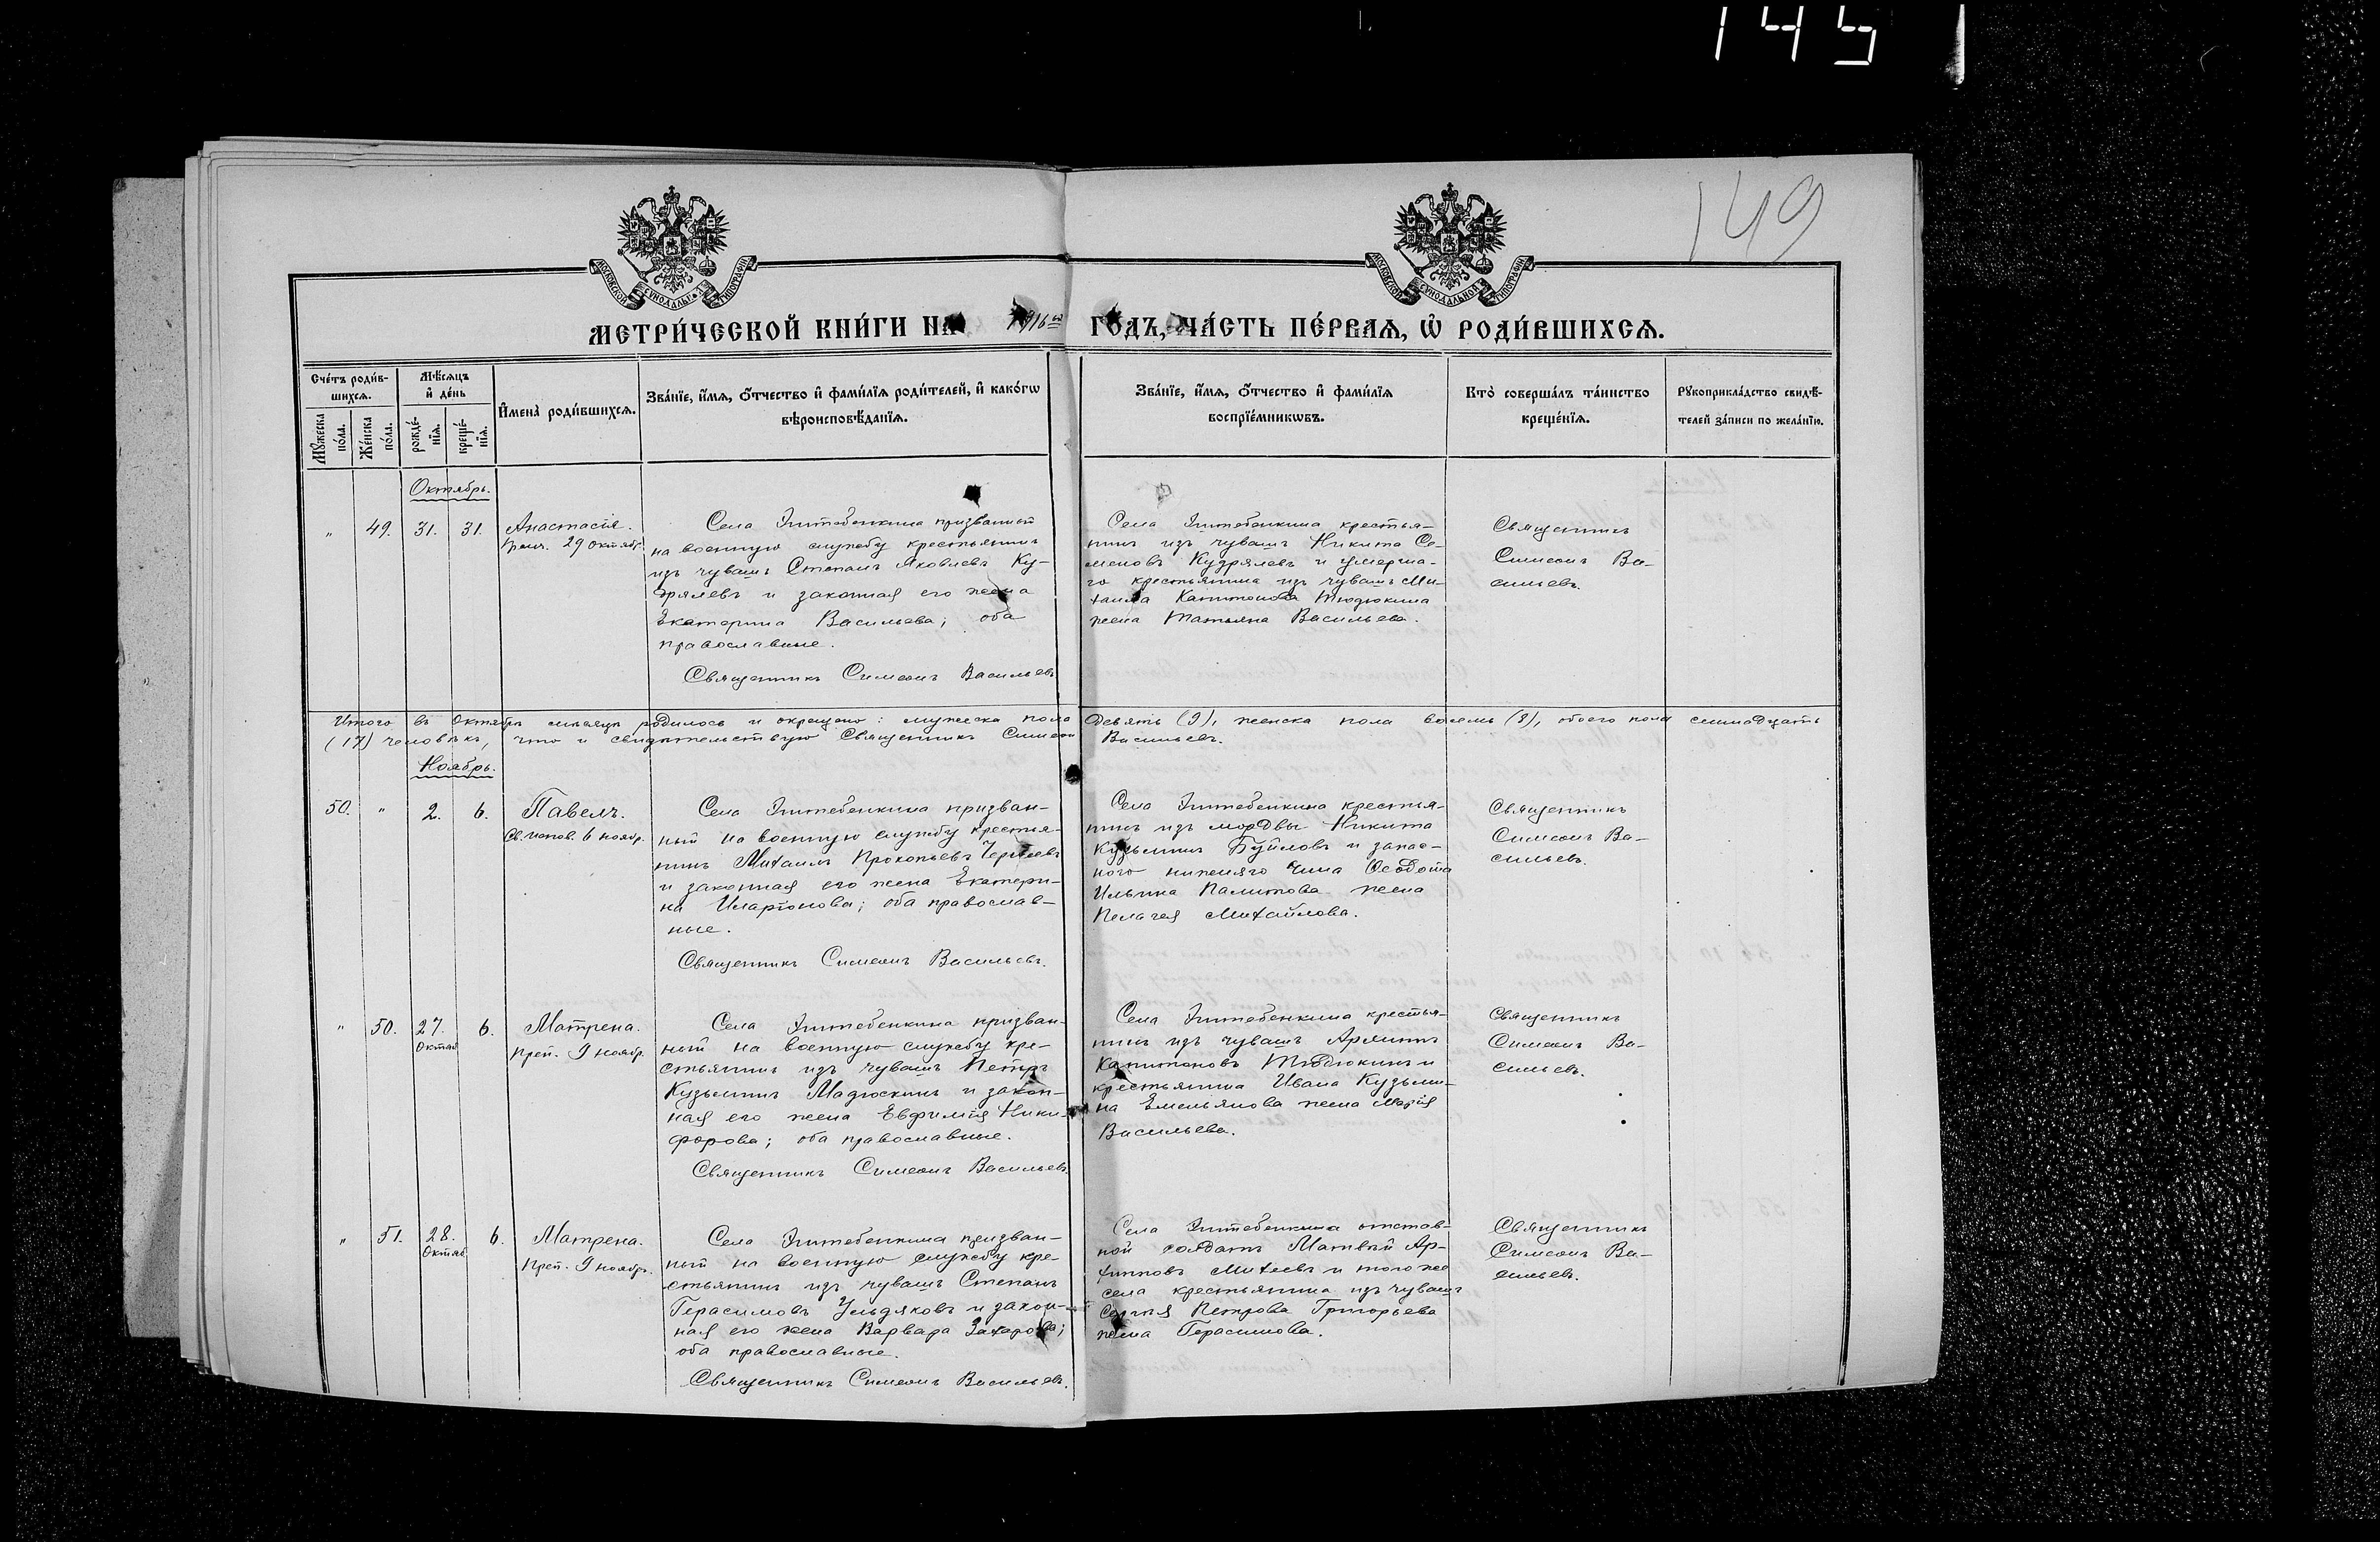 1451
149
МОСКОВСКОЙ СѴНОДАЛЬНОЙ ТИПОГРАФІИ
МОСКОВСКОЙ СѴНОДАЛЬНОЙ ТИПОГРАФІИ
МЕТРИ́ЧЕСКОЙ КНИ́ГИ НА 1916й ГО́ДЪ, ЧА́СТЬ ПЕ́РВАѦ, Ѡ҆ РОДИ́ВШИХСѦ.
Сче́тъ роди́в-
шихсѧ.
Мѣ́сѧцъ
и҆ де́нь
Мꙋ́жеска
по́ла.
Же́нска
по́ла.
рожде́-
нїѧ.
креще́-
нїѧ.
И҆мена̀ роди́вшихсѧ.
Зва́нїе, и҆́мѧ, ѻ҆́тчество и҆ фами́лїѧ роди́телей, и҆ како́гѡ
вѣроисповѣ́данїѧ.
Зва́нїе, и҆́мѧ, ѻ҆́тчество и҆ фами́лїѧ
воспрїе́мникѡвъ.
Кто̀ соверша́лъ та́инство
креще́нїѧ.
Рꙋкоприкла́дство свидѣ́-
телей за́писи по жела́нїю.
Октябрь.
" 49. 31. 31. Анастасія.
29 октябр.
Села призванный
на военную службу крестьянинъ
изъ чувашъ Степанъ Яковлевъ Ку-
дрялевъ и законная его жена
Екатерина Васильева; оба
православные.
Священникъ Симеонъ Васильевъ
Села крестья-
нинъ изъ чувашъ Никита Се-
меновъ Кудрялевъ и умерша-
го крестьянина изъ чувашъ Ми-
хаила Капитонова Тюдюкина
жена Татьяна Васильева.
Священникъ
Симеонъ Ва-
сильевъ.
Итого въ Октябрѣ мѣсяцѣ родилось и окрещено: мужеска пола девять (9), женска пола восемь (8), обоего пола семнадцать
(17) человѣкъ, что и свидѣтельствую Священникъ Симеонъ Васильевъ.
Ноябрь.
50. " 2. 6. Павелъ.
Св. испов. 6 ноябр.
Села призван-
ный на военную службу крестья-
нинъ Михаилъ Прокопьевъ
и законная его жена Екатери-
на Иларіонова; оба православ-
ные.
Священникъ Симеонъ Васильевъ.
Села крестья-
нинъ изъ мордвы Никита
Кузьминъ Буйловъ и запас-
ного нижняго чина Ѳеодота
Ильина жена
Пелагея Михайлова.
Священникъ
Симеонъ Ва-
сильевъ.
" 50. 27. 6. Матрена.
Октяб. Преп. 9 ноябр.
Села призван-
ный на военную службу кре-
стьянинъ изъ чувашъ Петръ
Кузьминъ Мадюскинъ и закон-
ная его жена Евфимія Ники-
форова; оба православные.
Священникъ Симеонъ Васильевъ.
Села крестья-
нинъ изъ чувашъ
Капитоновъ Тюдюкинъ и
крестьянина Ивана Кузьми-
на Емельянова жена Марія
Васильева.
Священникъ
Симеонъ Ва-
сильевъ.
" 51. 28. 6. Матрена.
Октяб. Преп. 9 ноябр.
Села призван-
ный на военную службу кре-
стьянинъ изъ чувашъ Степанъ
Герасимовъ Ульдяковъ и закон-
ная его жена Варвара Захарова;
оба православные.
Священникъ Симеонъ Васильевъ.
Села отстав-
ной солдатъ Матвѣй Ар-
хиповъ Михеевъ и того же
села крестьянина изъ чувашъ
Сергѣя Петрова Григорьева
жена Герасимова.
Священникъ
Симеонъ Ва-
сильевъ.